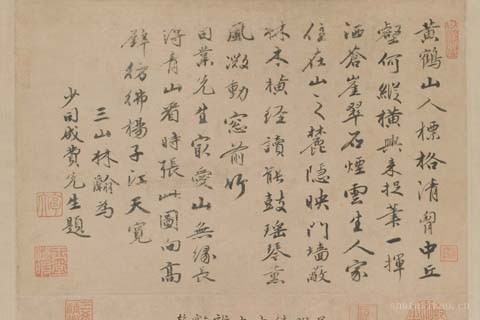 黃鶴山人標格清胷中丘
壑何縱橫興來捉筆一揮
洒蒼崖翠石煙雲生人家
住在山之麓隱映門墻敞
林木橫經讀能鼓瑤琴熏
風微動窓前竹
司業先生家愛山無緣長
得青山看時張此圖向高
壁彷彿楊子江天寬
三山林瀚為
少司成費先生題